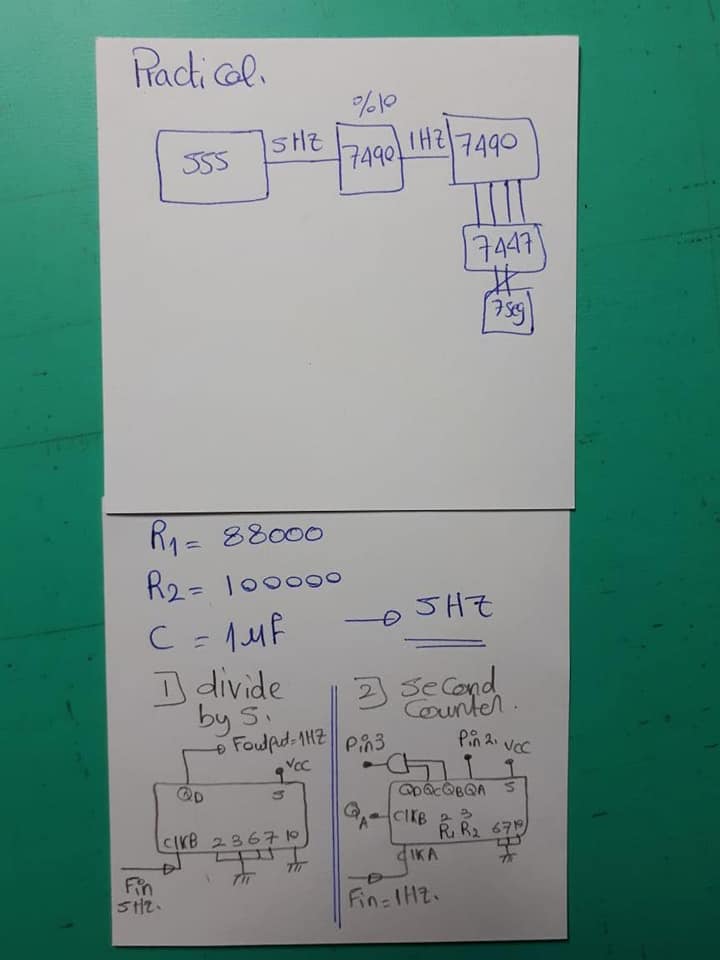 Practical.
%10
555 5HZ 7490 1HZ 7490
7447
7seg
R1 = 88000
R2 = 100000
C = 1µF 5HZ
1) divide
by 5.
Foutput=1HZ
VCC
QD 5
ClKB 2 3 6 7 10
Fin
5Hz.
2) Second
Counter.
Pin3 Pin 2. VCC
QD QC QB QA 5
QA ClKB 2 3
R1 R2 6 7 10
ClKA
Fin=1HZ.